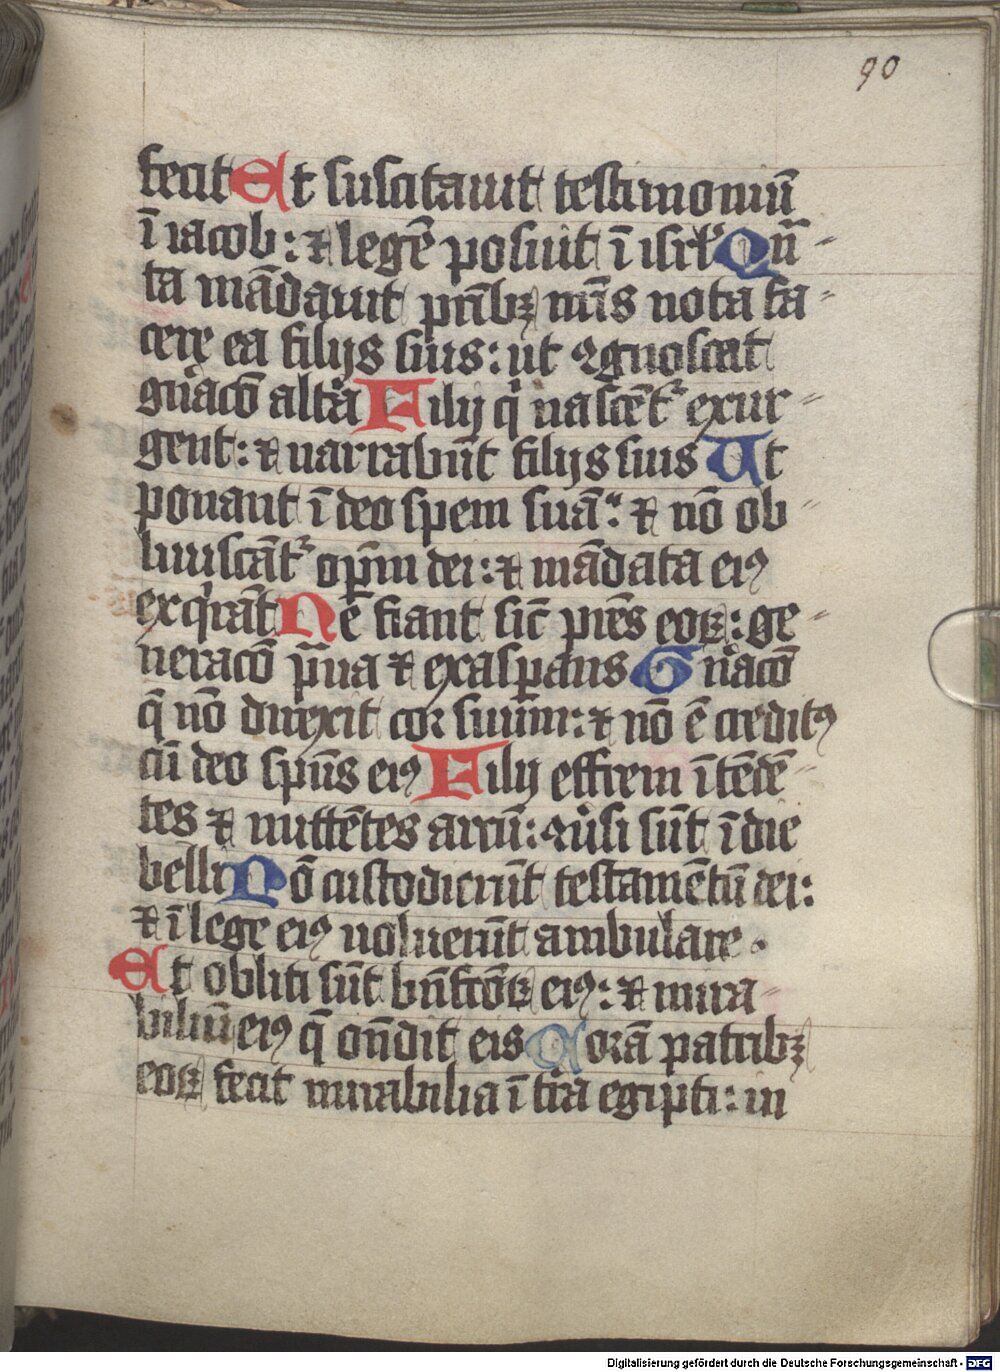 90
fecit Et suscitauit testimoniū
ī iacob: ⁊ legē posuit ī isrl̄ Qū-
ta mādauit pr̄ibꝫ nr̄is nota fa-
cere ea filijs suis: ut ꝯgnoscat
gn̄acō altᵃa Filij qⁱ nascēt᷑ exur-
gent: ⁊ narrabūt filijs suis Ut
ponant ī deo spem suā: ⁊ nō ob-
liuiscāt᷑ oꝑum dei: ⁊ mādata eiꝰ
exqⁱrāt Ne fiant sic̄ pr̄es eoꝝ: ge-
neracō pͣua ⁊ exasꝑans Gn̄acō
q̄ nō direxit cor suum: ⁊ nō ē creditꝰ
cū deo sp̄us eiꝰ Filij effrem ītēdē-
tes ⁊ mittētes arcū: ꝯūsi sūt ī die
belli Nō custodierūt testamētū dei:
⁊ ī lege eiꝰ noluerūt ambulare.
Et obliti sūt bn̄fcōꝝ eiꝰ: ⁊ mira-
biliū eiꝰ q̄ on̄dit eis Corā patribꝫ
eoꝝ fecit mirabilia ī tr̄a egipti: in
Digitalisierung gefördert durch die Deutsche Forschungsgemeinschaft - DFG